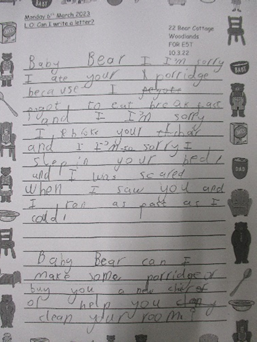 Monday 6th March 2023
L.O: Can I write a letter?
22 Bear Cottage
Woodlands
FOR EST
10.3.22
Baby Bear I I'm sorry
I ate your porridge
because I
to eat breakfast
and I I'm sorry
I broke your
and I I'm so sorry I
sleep in your bed
and I was scared
when I saw you and
I ran as fast as I
could
Baby Bear can I
make some porridge or
buy you a new
or help you
clean your room